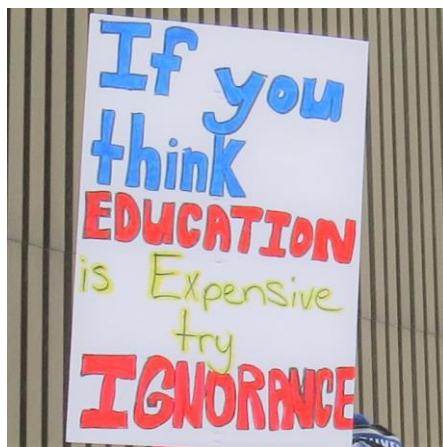 If you
think
EDUCATION
is Expensive
try
IGNORANCE